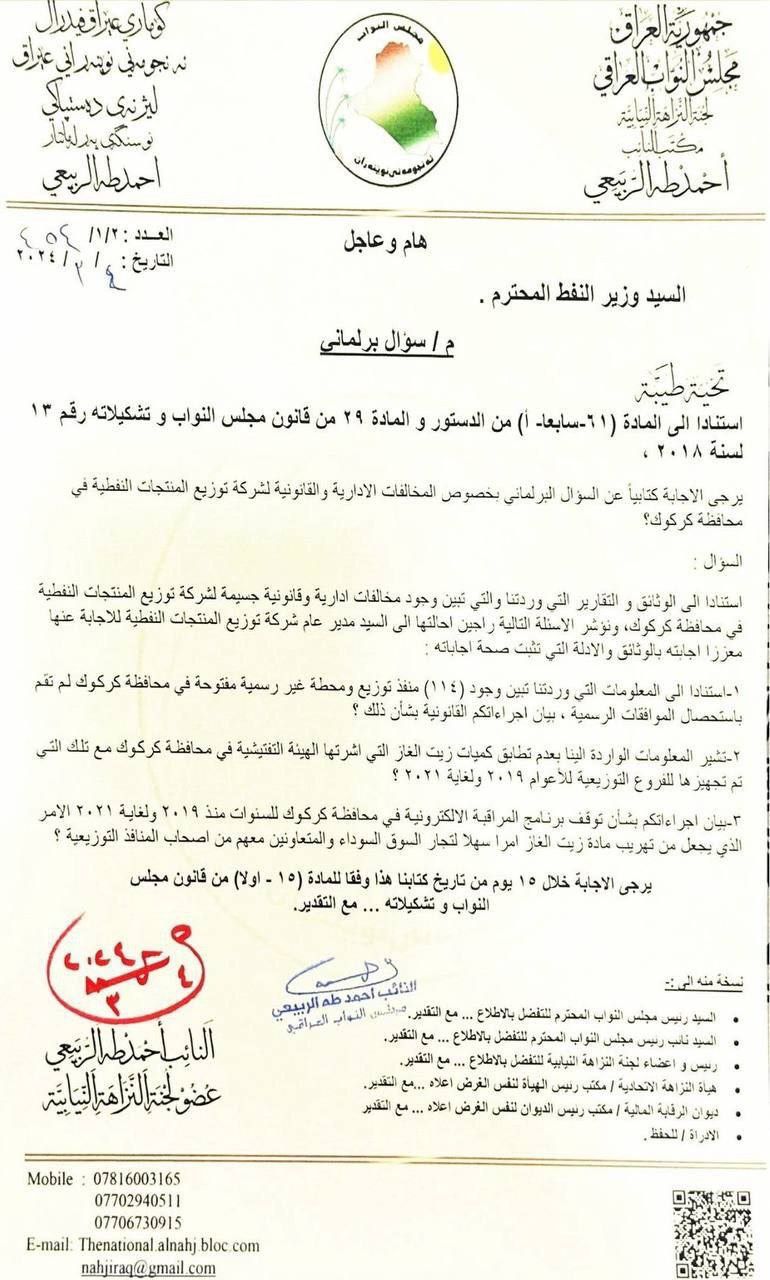 جمهورية العراق
مجلس النواب العراقي
لجنة النزاهة النيابية
مكتب النائب
أحمد طه الربيعي
كوماري عيراقي فيدرال
ئه نجومه ني نوينه راني عيراق
ليژنه ى ده ستپاكي
احمد طه الربيعي
مجلس النواب
ئه نجومه ني نوينه ران
العدد : ١/٢/ ٤٥٤
التاريخ : ٤ / ٣ / ٢٠٢٤
هام وعاجل
السيد وزير النفط المحترم .
م / سؤال برلماني
تحية طيبة
استنادا الى المادة (٦١-سابعا- أ) من الدستور و المادة ٢٩ من قانون مجلس النواب و تشكيلاته رقم ١٣
لسنة ٢٠١٨ ،
يرجى الاجابة كتابياً عن السؤال البرلماني بخصوص المخالفات الادارية والقانونية لشركة توزيع المنتجات النفطية في
محافظة كركوك؟
السؤال :
استنادا الى الوثائق و التقارير التي وردتنا والتي تبين وجود مخالفات ادارية وقانونية جسيمة لشركة توزيع المنتجات النفطية
في محافظة كركوك، ونؤشر الاسئلة التالية راجين احالتها الى السيد مدير عام شركة توزيع المنتجات النفطية للاجابة عنها
معززا اجابته بالوثائق والادلة التي تثبت صحة اجاباته :
١-استنادا الى المعلومات التي وردتنا تبين وجود (١١٤) منفذ توزيع ومحطة غير رسمية مفتوحة في محافظة كركوك لم تقم
باستحصال الموافقات الرسمية ، بيان اجراءاتكم القانونية بشأن ذلك ؟
٢-تشير المعلومات الواردة الينا بعدم تطابق كميات زيت الغاز التي اشرتها الهيئة التفتيشية في محافظة كركوك مع تلك التي
تم تجهيزها للفروع التوزيعية للأعوام ٢٠١٩ ولغاية ٢٠٢١ ؟
٣-بيان اجراءاتكم بشأن توقف برنامج المراقبة الالكترونية في محافظة كركوك للسنوات منذ ٢٠١٩ ولغاية ٢٠٢١ الامر
الذي يجعل من تهريب مادة زيت الغاز امرا سهلا لتجار السوق السوداء والمتعاونين معهم من اصحاب المنافذ التوزيعية ؟
يرجى الاجابة خلال ١٥ يوم من تاريخ كتابنا هذا وفقا للمادة (١٥ - اولا) من قانون مجلس
النواب و تشكيلاته ... مع التقدير.
النائب أحمد طه الربيعي
عضو لجنة النزاهة النيابية
النائب احمد طه الربيعي
مجلس النواب العراقي
نسخة منه الى :-
السيد رئيس مجلس النواب المحترم للتفضل بالاطلاع ... مع التقدير.
السيد نائب رئيس مجلس النواب المحترم للتفضل بالاطلاع ... مع التقدير.
رئيس و اعضاء لجنة النزاهة النيابية للتفضل بالاطلاع ... مع التقدير.
هيأة النزاهة الاتحادية / مكتب رئيس الهيأة لنفس الغرض اعلاه ...مع التقدير.
ديوان الرقابة المالية / مكتب رئيس الديوان لنفس الغرض اعلاه ... مع التقدير
الادراة / للحفظ .
Mobile : 07816003165
07702940511
07706730915
E-mail: Thenational.alnahj.bloc.com
nahjiraq@gmail.com